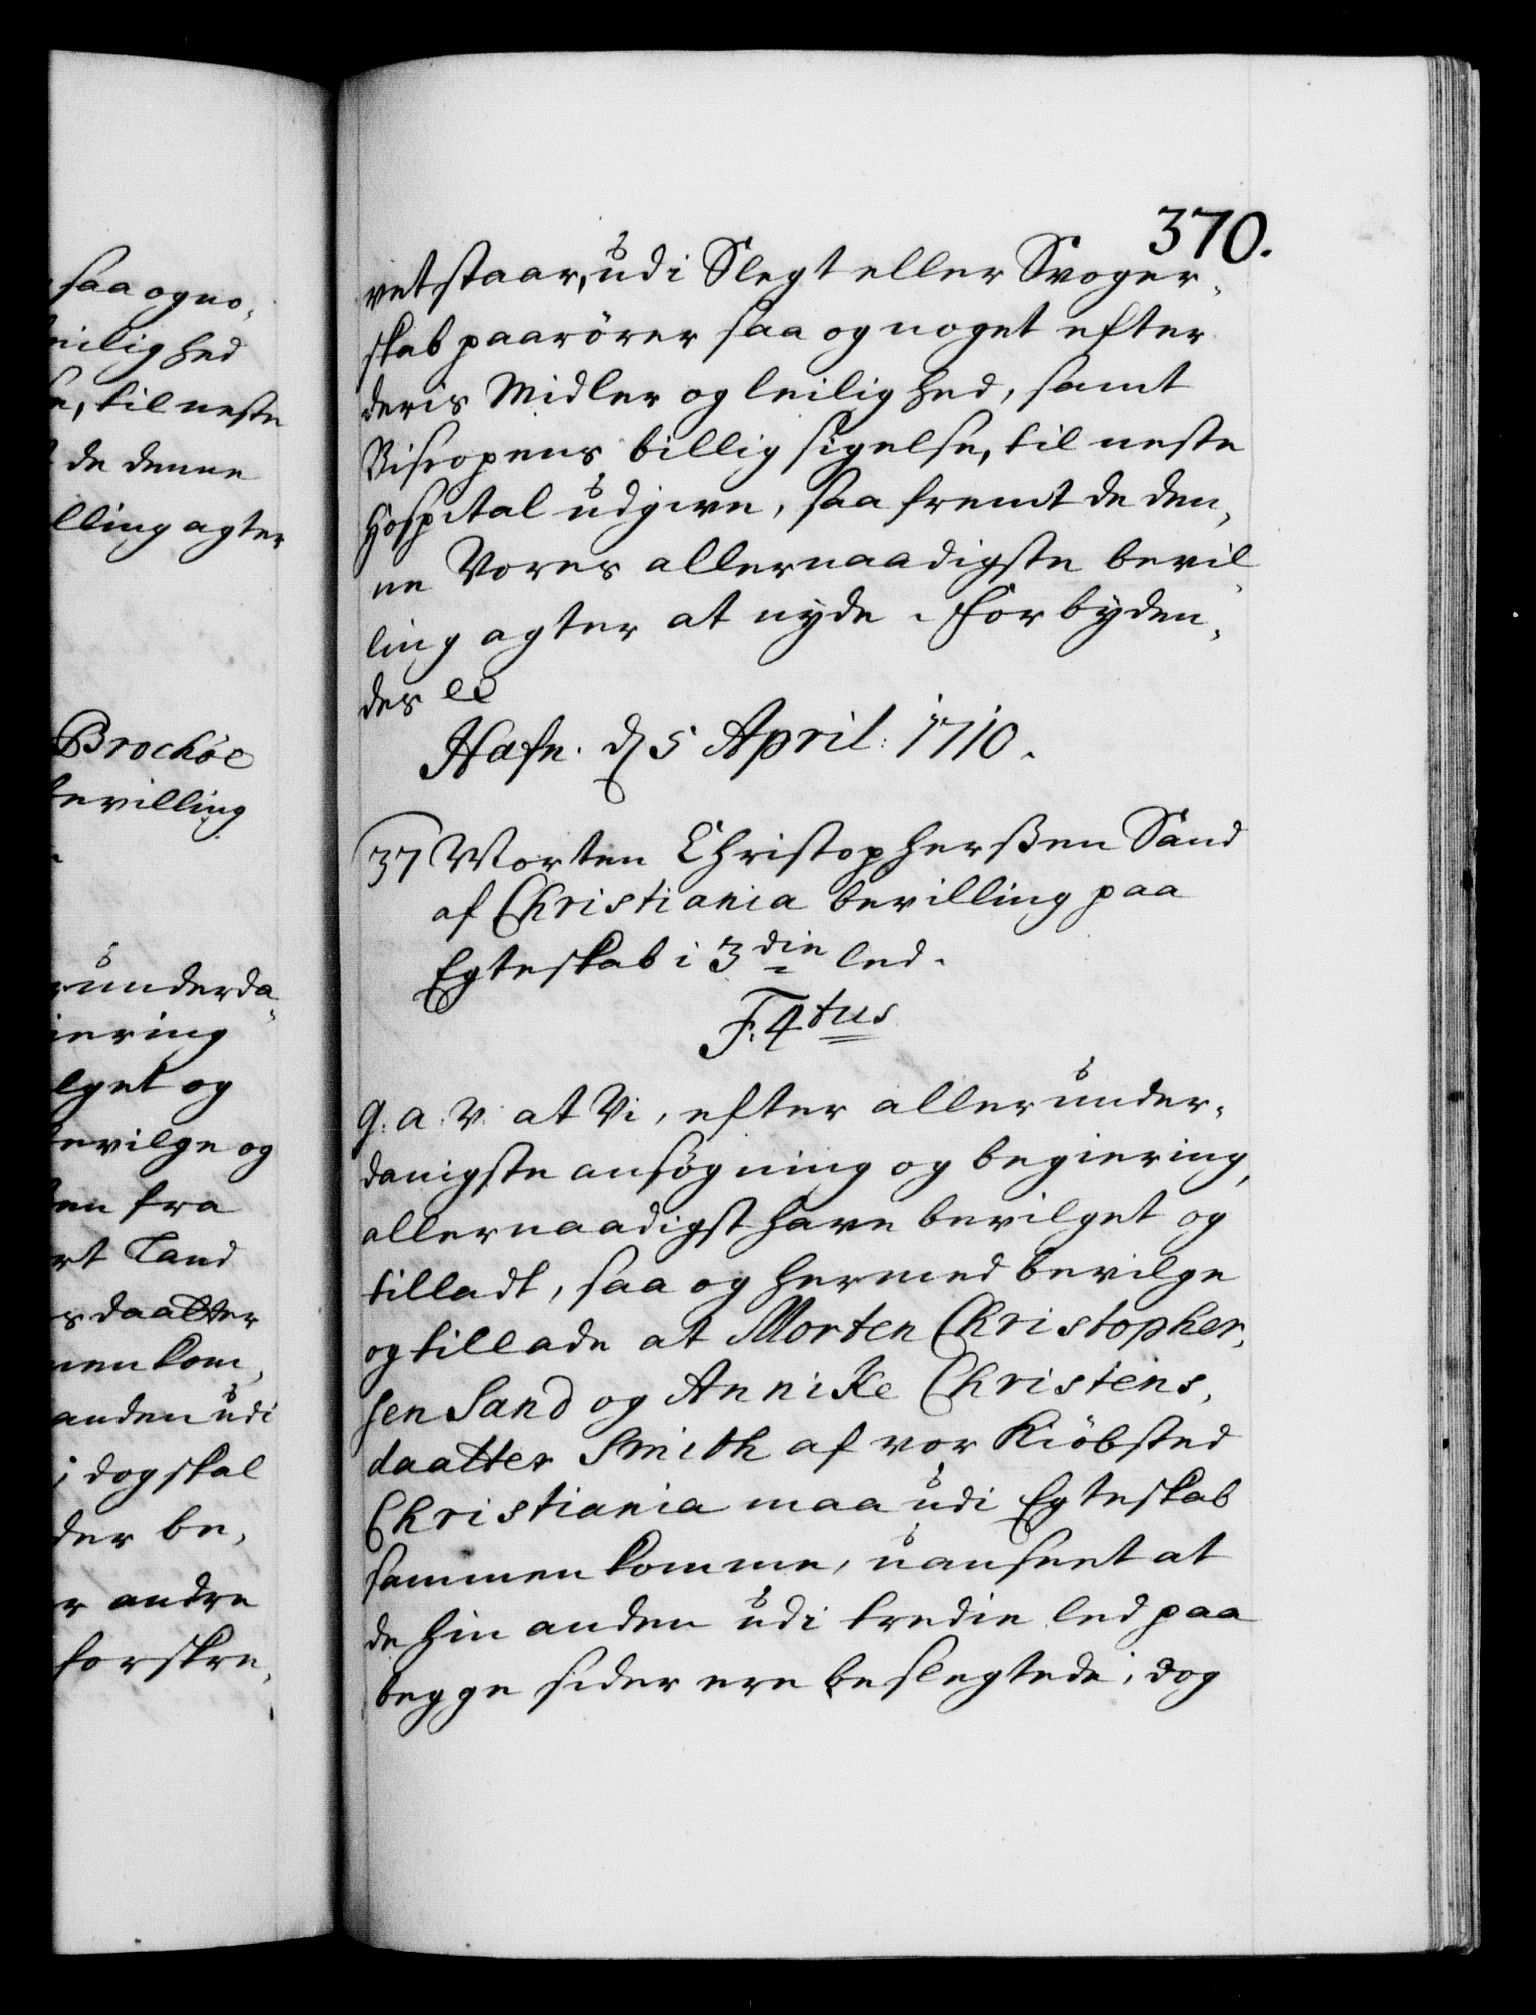 saa og no-
leilighed
se, til neste
de denne
lling agter
Brockøe
bevilling
underda-
iering
lget og
bevilge og
ten fra
rt Land
s daatter
men kom-
anden udi
i dog skal
der be-
r andre
forskre-
370.
vet staar, udi Slegt eller Svoger-
skab paarörer saa og noget efter
deris Midler og leilighed, samt
Biscopens billig sigelse, til neste
Hospital udgive, saa fremt de den-
ne Vores allernaadigste bevil-
ling agter at nyde. Forbyden-
des etc
Hafn. d 5 April: 1710.
37 Morten Christopherßen Sand
af Christiania bevilling paa
Egteskab i 3die led.
F. 4tus
G. a. V. at Vi, efter allerunder-
danigste ansøgning og begiering,
allernaadigst have bevilget og
tilladt, saa og hermed bevilge
og tillade at Morten Christopher-
sen Sand og Annike Christens-
daatter Smith af vor Kiöbsted
Christiania maa udi Egteskab
sammen komme, uanseet at
de hin anden udi tredie led paa
begge sider ere beslegtede, dog